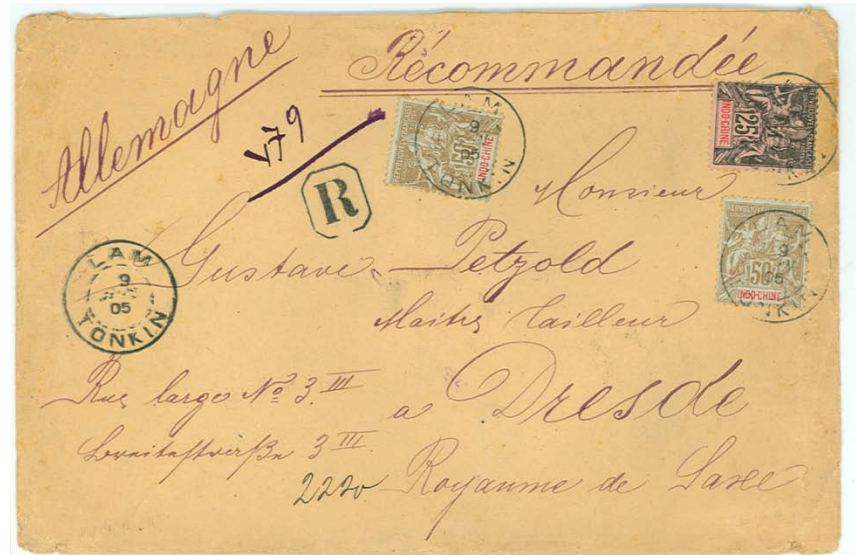 Allemagne
Récommandée
V79
R
50
INDO-CHINE
25
INDO-CHINE
50
INDO-CHINE
LAM
9
05
TONKIN
Monsieur
Gustave Petzold
Maitre Tailleur
a Dresde
Rue largo Nº 3.III
Breitestraße 3 III.
2220
Royaume de Saxe